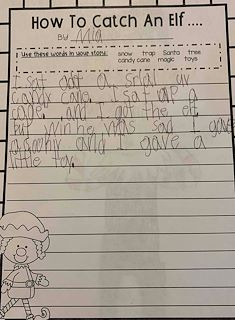 How To Catch An Elf ....
BY Mia
Use these words in your story:
snow trap Santa tree
candy cane magic toys
I sat out a
candy cane. I sat up a
cage. and I got the elf
but wan he was sad I gave
a and I gave a
little toy.